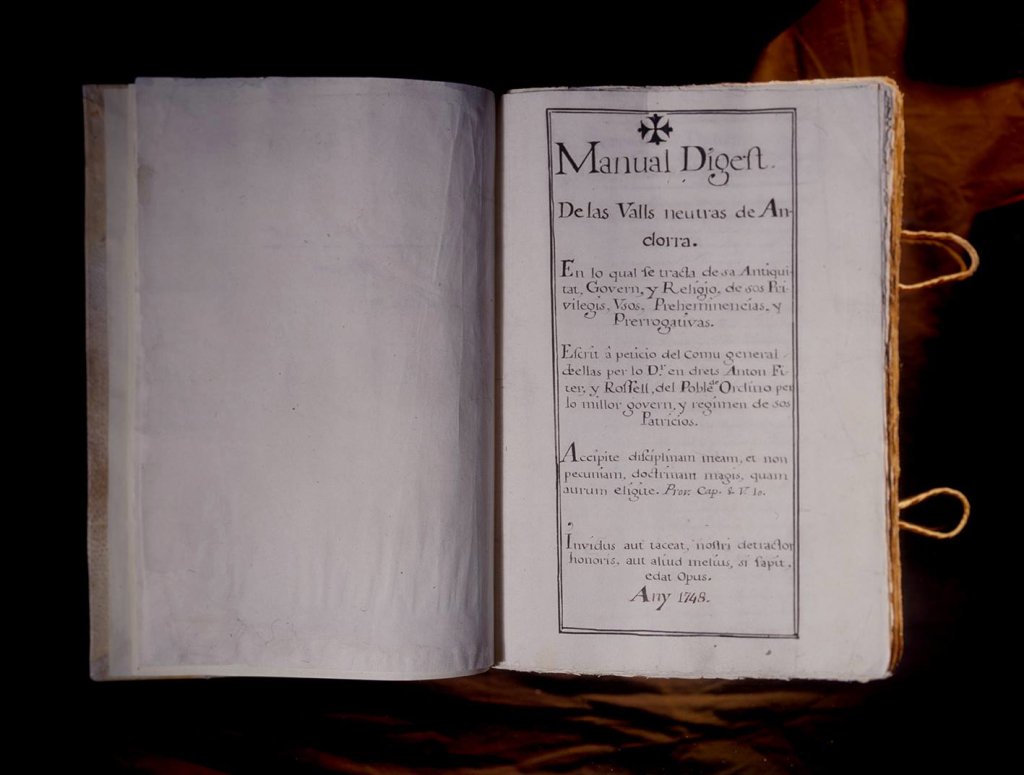 Manual Digest.
De las Valls neutras de An-
dorra.
En lo qual se tracta de sa Antiqui-
tat, Govern, y Religio, de sos Pri-
vilegis, Usos, Preheminencias, y
Prerrogativas.
Escrit á peticio del Comu general
de ellas per lo Dr. en drets Anton Fi-
ter, y Rossell, del Poble de Ordino per
lo millor govern, y regimen de sos
Patricios.
Accipite disciplinam meam, et non
pecuniam, doctrinam magis, quam
aurum eligite. Prov. Cap. 8. V. 10.
Invidus aut taceat, nostri detractor
honoris, aut aliud melius, si sapit,
edat Opus.
Any 1748.